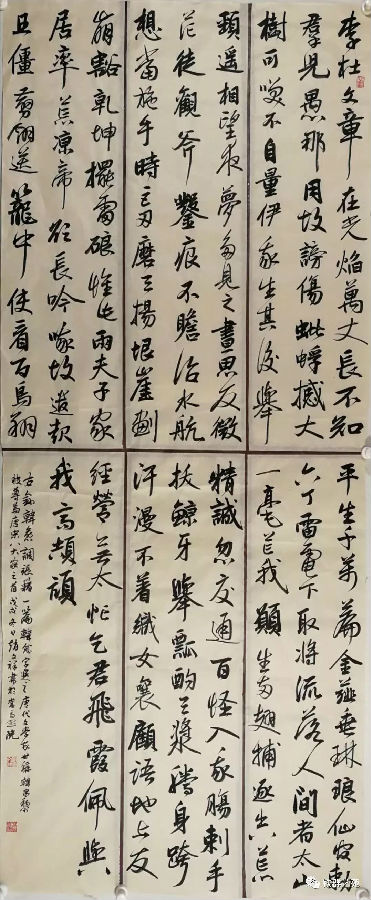 李杜文章在光焰萬丈長不知
群兒愚那用故謗傷蚍蜉撼大
樹可笑不自量伊我生其後舉
頸遙相望夜夢多見之晝思反微
茫徒觀斧鑿痕不瞻治水航
想當施手時巨刃磨天揚垠崖劃
崩豁乾坤擺雷硠惟此兩夫子家
居率荒涼帝欲長吟哦故遣起
且僵剪翎送籠中使看百鳥翔
平生千萬篇金薤垂琳琅仙官勅
六丁雷電下取將流落人間者太山
一毫芒我願生兩翅捕逐出八荒
精誠忽交通百怪入我腸刺手
拔鯨牙舉瓢酌天漿騰身跨
汗漫不着織女襄顧語地上友
經營無太忙乞君飛霞佩與
我高頡頏
韓愈調張籍一篇韓愈字退之唐代文學家世稱韓昌黎
被尊為唐宋八大家之首戊戌冬日